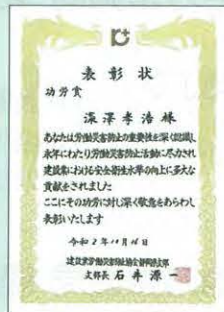 表彰状
功労賞
深澤孝浩 様
あなたは労働災害防止の重要性を深く認識し
永年にわたり労働災害防止活動に尽力され
建設業における安全衛生水準の向上に多大な
貢献をされました
ここにその功労に対し深く敬意をあらわし
表彰いたします
令和2年10月16日
建設業労働災害防止協会静岡県支部
支部長 石井源一